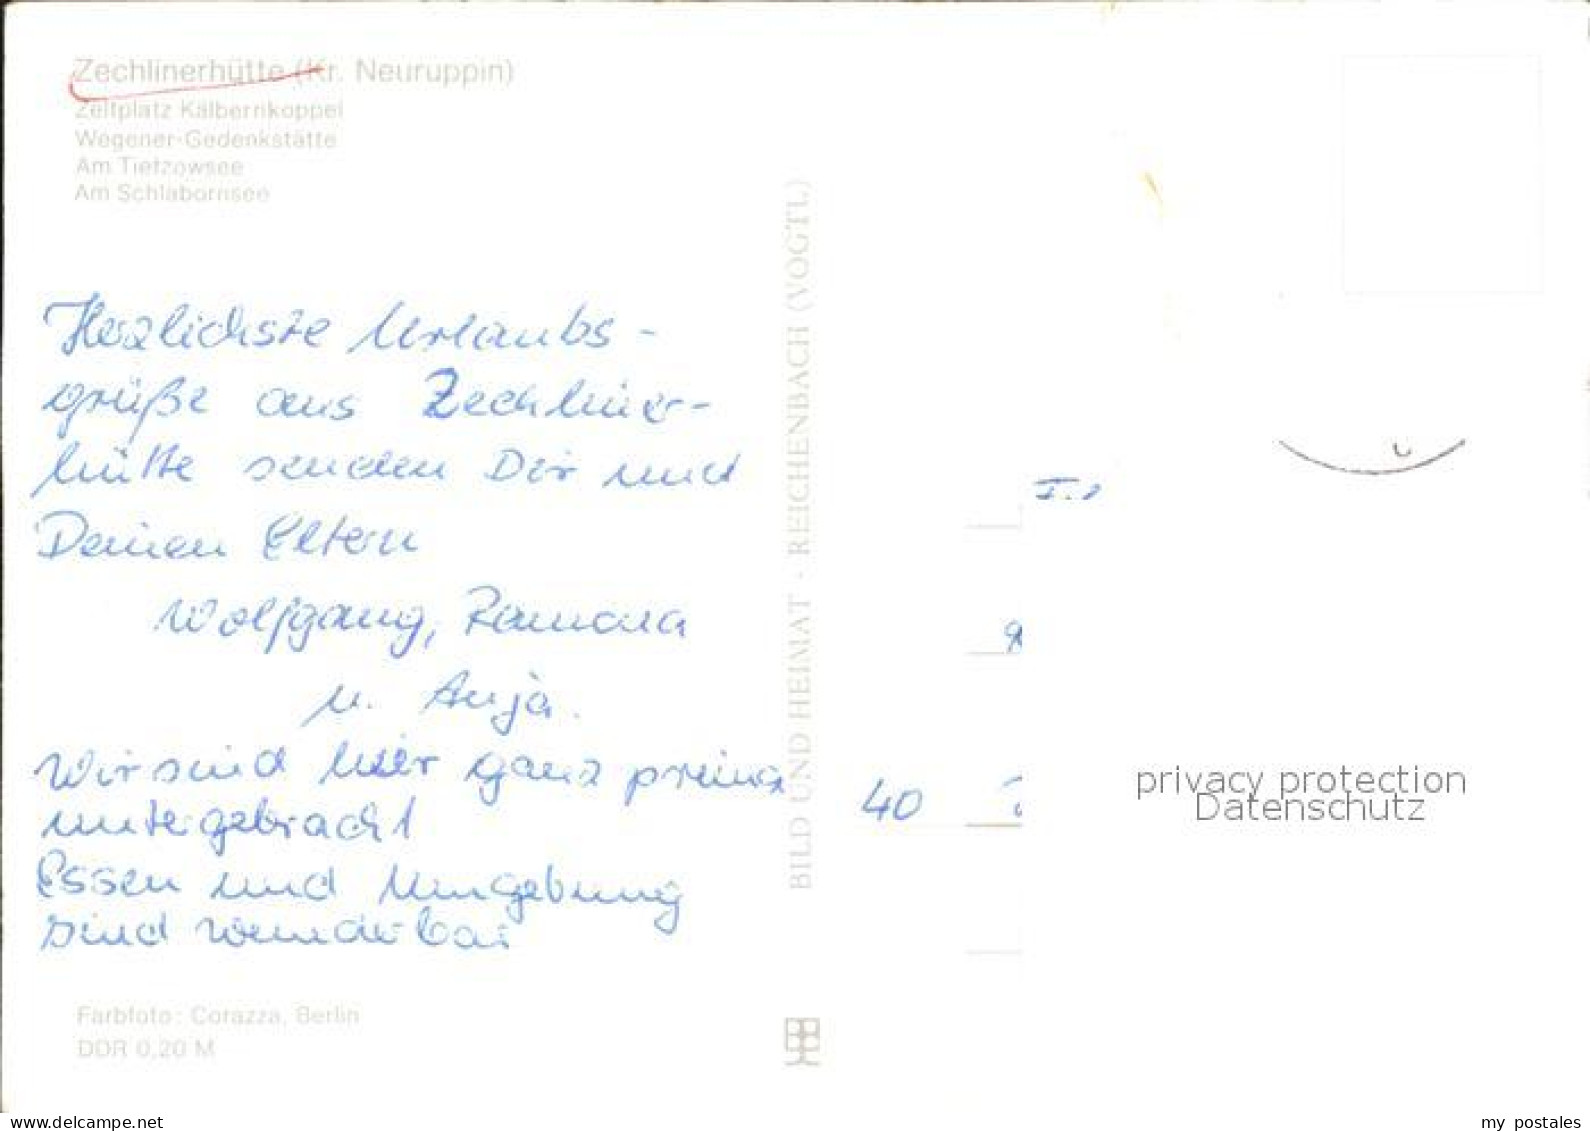 Zechlinerhütte (Kr. Neuruppin)
Zeltplatz Kälbernkoppel
Wegener-Gedenkstätte
Am Tietzowsee
Am Schlabornsee
Herzlichste Urlaubs-
grüße aus Zechliner-
hütte senden Dir und
Deinen Eltern
Wolfgang, Ramona
u. Anja.
Wir sind hier ganz prima
untergebracht
Essen und Umgebung
sind wunderbar
Farbfoto: Corazza, Berlin
DDR 0,20 M
BILD UND HEIMAT · REICHENBACH (VOGTL)
40
privacy protection
Datenschutz
www.delcampe.net
my_postales